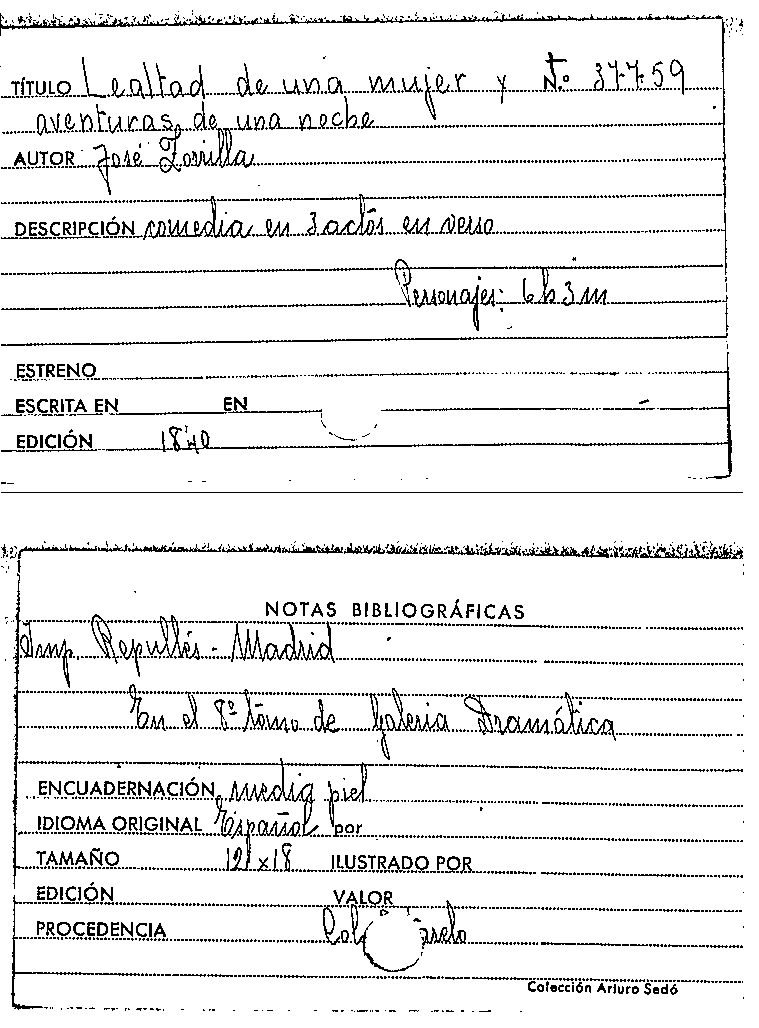 TÍTULO Lealtad de una mujer y N.º 37759
aventuras de una noche
AUTOR José Zorrilla
DESCRIPCIÓN comedia en 3 actos en verso
Personajes: 6 h 3 m
ESTRENO
ESCRITA EN EN
EDICIÓN 1840
NOTAS BIBLIOGRÁFICAS
Imp. Repullés - Madrid
En el 8º tomo de Galeria Dramática
ENCUADERNACIÓN media piel
IDIOMA ORIGINAL Español por
TAMAÑO 12 x 18 ILUSTRADO POR
EDICIÓN VALOR
PROCEDENCIA
Colección Arturo Sedó